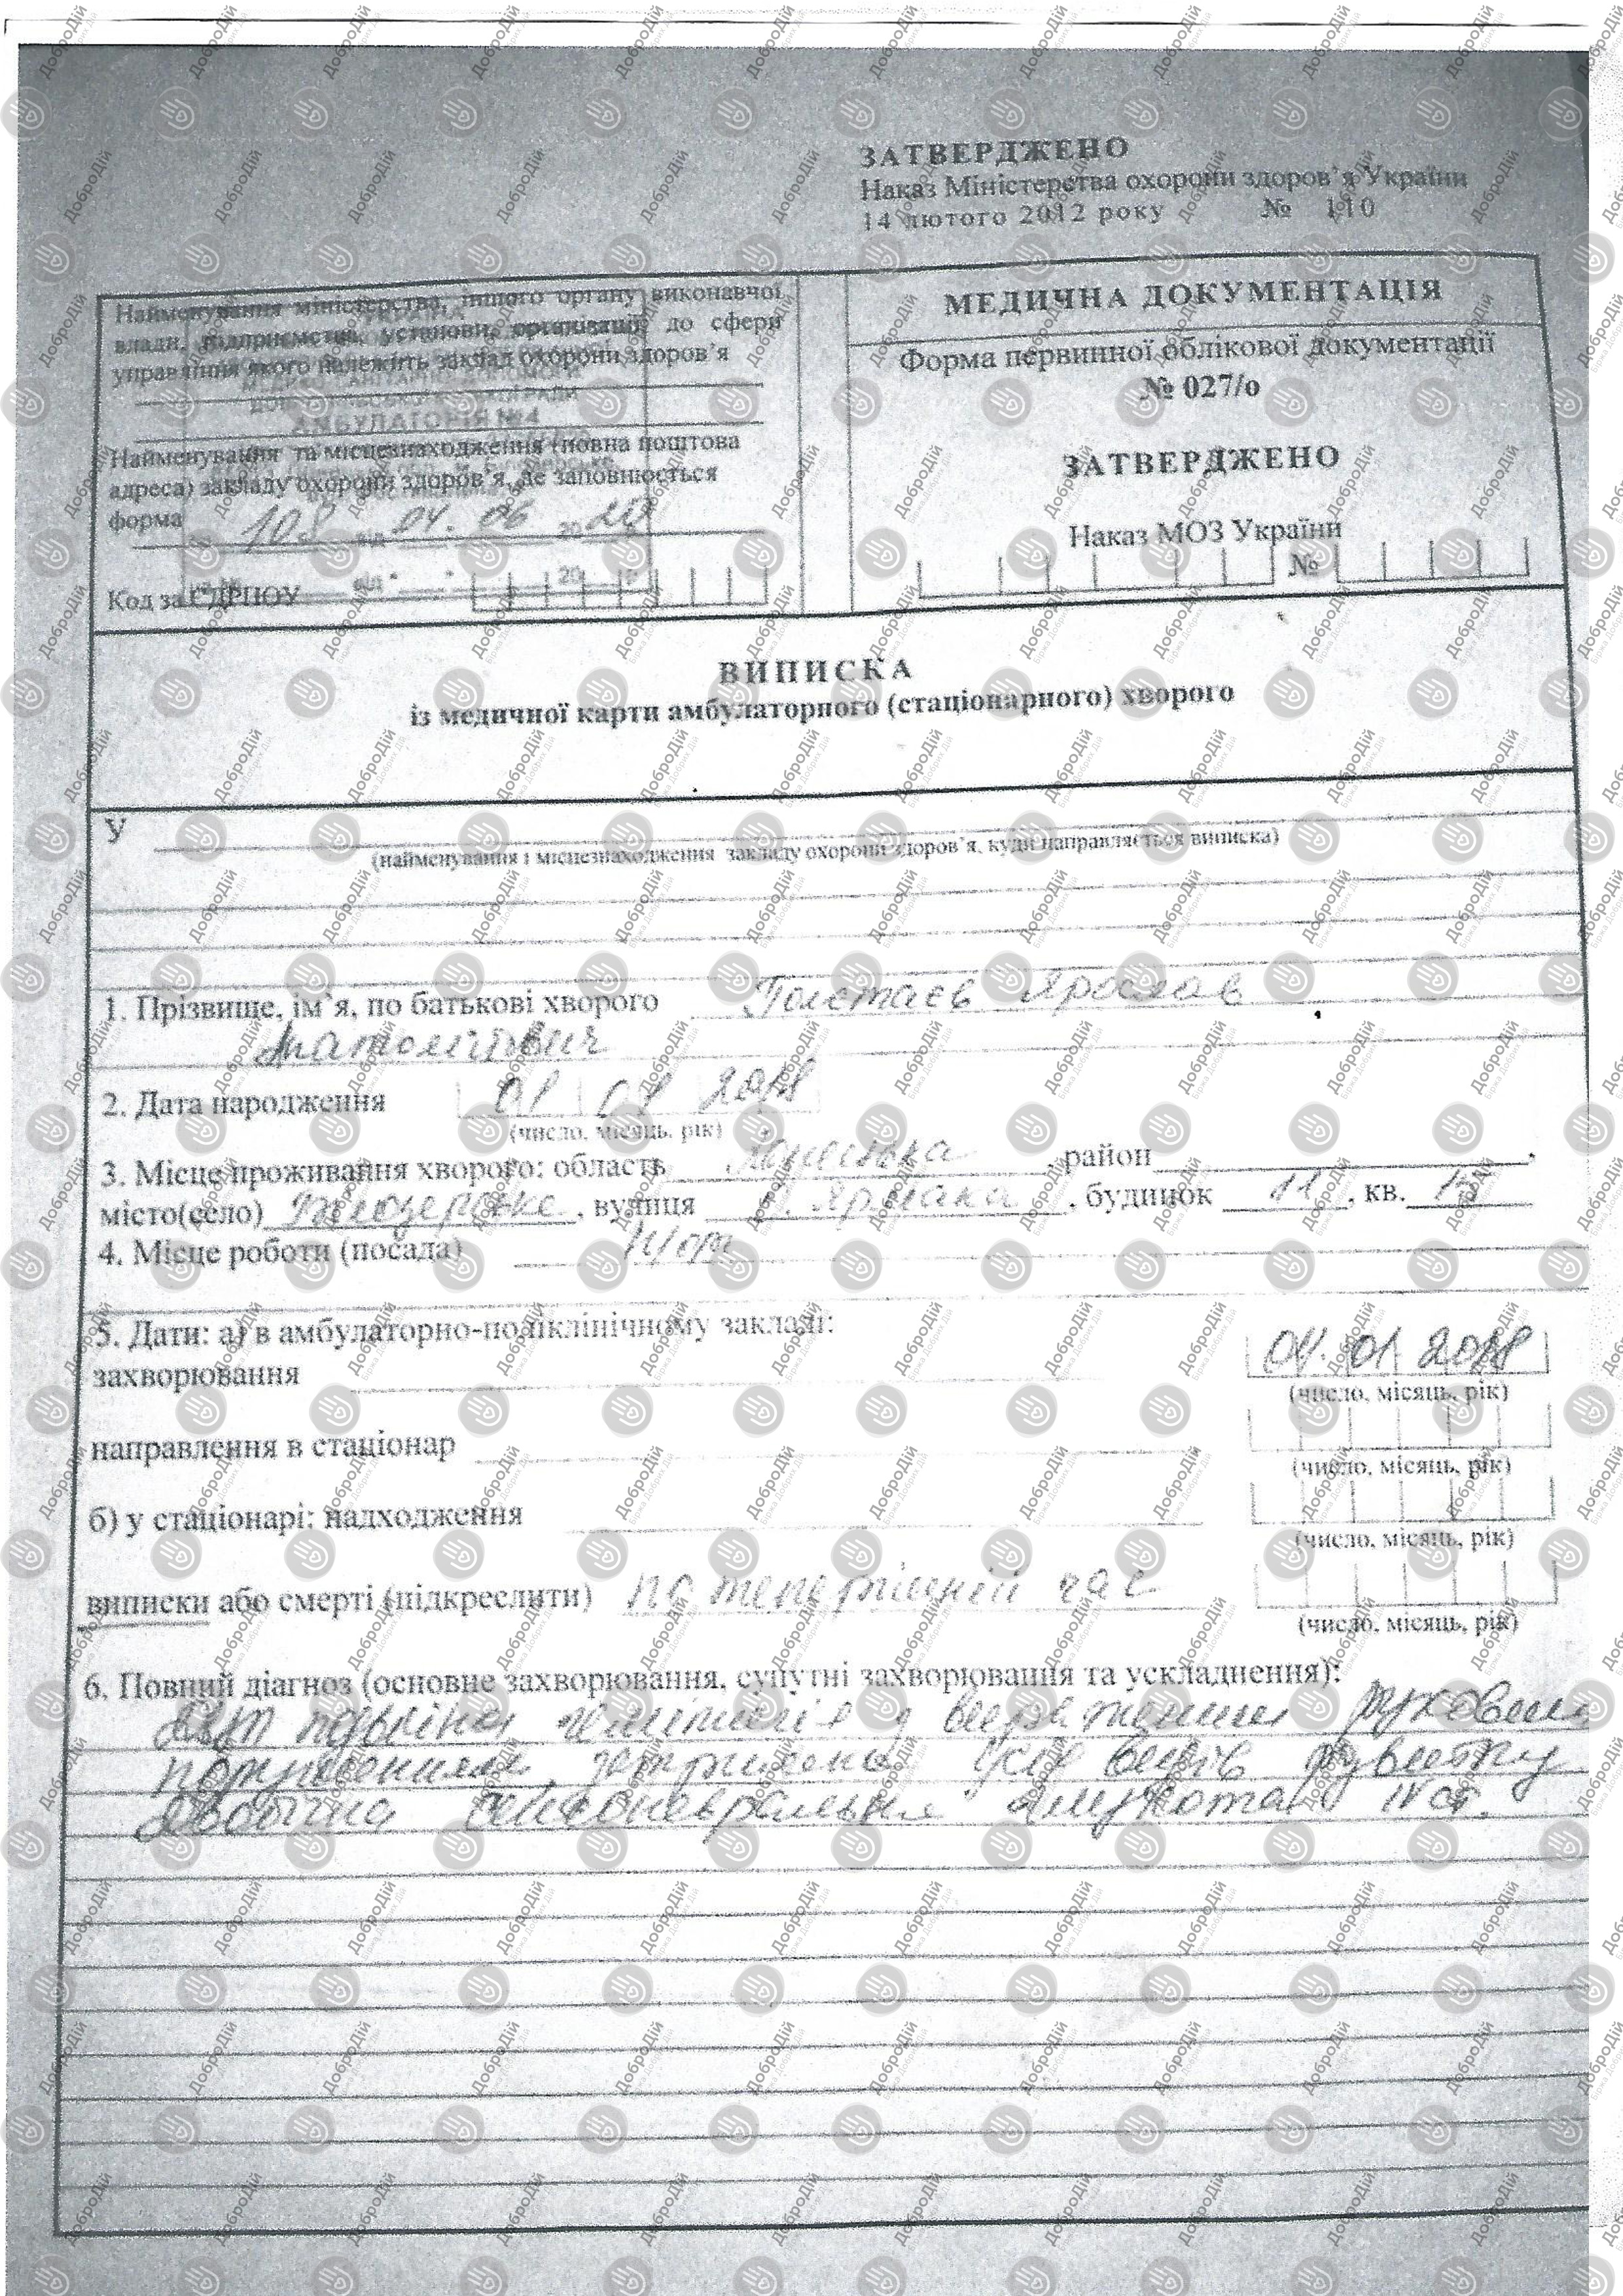 ЗАТВЕРДЖЕНО
Наказ Міністерства охорони здоров'я України
14 лютого 2012 року № 110
Найменування міністерства, іншого органу виконавчої
влади, підприємства, установи, організації, до сфери
управління якого належить заклад охорони здоров'я
АМБУЛАТОРІЯ №4
Найменування та місцезнаходження (повна поштова
адреса) закладу охорони здоров'я, де заповнюється
форма
108 від 04. 06 2020
Код за ЄДРПОУ
МЕДИЧНА ДОКУМЕНТАЦІЯ
Форма первинної облікової документації
№ 027/о
ЗАТВЕРДЖЕНО
Наказ МОЗ України
№
ВИПИСКА
із медичної карти амбулаторного (стаціонарного) хворого
У
(найменування і місцезнаходження закладу охорони здоров'я, куди направляється виписка)
1. Прізвище, ім'я, по батькові хворого Ярослав
Анатолійович
2. Дата народження 2018
(число, місяць, рік)
3. Місце проживання хворого: область , район ,
місто(село) Білозерське, вулиця , будинок 11, кв. 15
4. Місце роботи (посада)
5. Дати: а) в амбулаторно-поліклінічному закладі:
захворювання 04. 01 2018
(число, місяць, рік)
направлення в стаціонар
(число, місяць, рік)
б) у стаціонарі: надходження
(число, місяць, рік)
виписки або смерті (підкреслити) по теперішній час
(число, місяць, рік)
6. Повний діагноз (основне захворювання, супутні захворювання та ускладнення):
ДЦП подвійна геміплегія з вираженими руховими
порушеннями, затримка усіх видів розвитку
двобічна сенсоневральна глухота IV ст.
ДоброДій